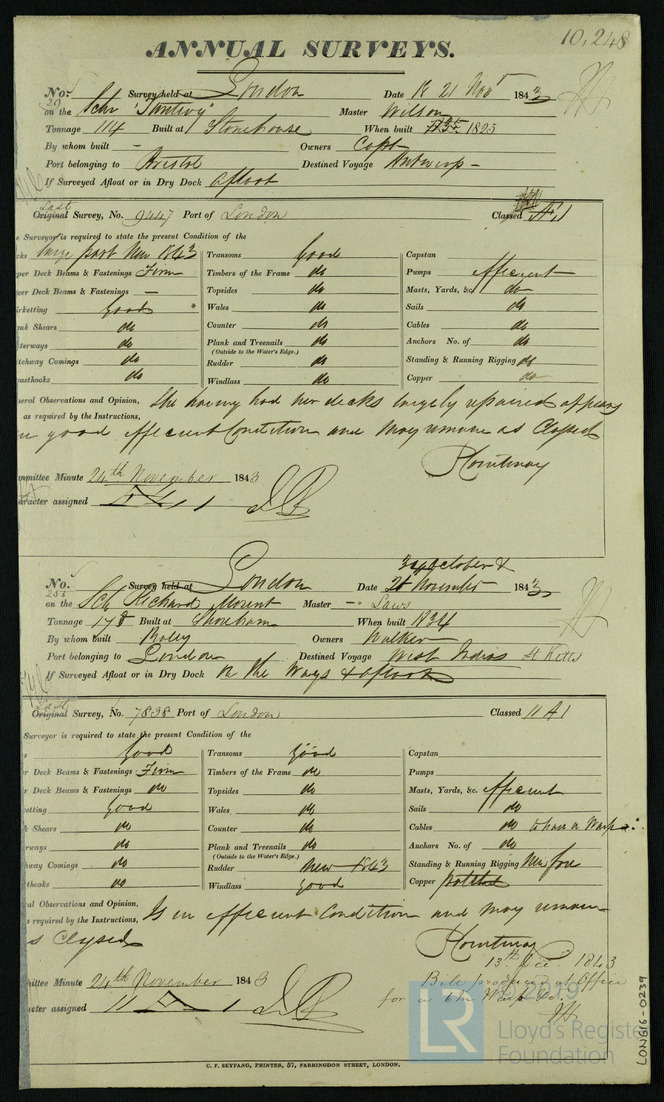 10,248
ANNUAL SURVEYS.
No. 20 Survey held at London Date 18 21 Novr 1843
on the Schr Master Wilson
Tonnage 114 Built at Stonehouse When built 1825
By whom built - Owners Capt
Port belonging to Bristol Destined Voyage Antwerp -
If Surveyed Afloat or in Dry Dock afloat
Last
Original Survey, No. 9447 Port of London Classed Æ 1
e Surveyor is required to state the present Condition of the
cks large part New 1843 Transoms Good Capstan
per Deck Beams & Fastenings Firm Timbers of the Frame do Pumps efficient
wer Deck Beams & Fastenings — Topsides do Masts, Yards, &c. do
irketting Good Wales do Sails do
nk Shears do Counter do Cables do
terways do Plank and Treenails do Anchors No. of do
(Outside to the Water's Edge.)
tchway Comings do Rudder do Standing & Running Rigging do
easthooks do Windlass do Copper do
neral Observations and Opinion, She having had her decks largely repaired appears
as required by the Instructions,
in good efficient Condition and may remain as Classed
mmittee Minute 24th November 1843
aracter assigned Æ 1
No. 253 Survey held at London Date 3rd October & 20 November 1843
on the Sch Richard Morent Master - Laws
Tonnage 178 Built at Shoreham When built 1834
By whom built Baley Owners Walker
Port belonging to London Destined Voyage West Indies St Kitts
If Surveyed Afloat or in Dry Dock On the Ways & afloat
Last
Original Survey, No. 7838 Port of London Classed 11 A 1
Surveyor is required to state the present Condition of the
s Good Transoms good Capstan
r Deck Beams & Fastenings Firm Timbers of the Frame do Pumps
r Deck Beams & Fastenings do Topsides do Masts, Yards, &c. efficient
etting Good Wales do Sails do
k Shears do Counter do Cables do to have a Warp
rways do Plank and Treenails do Anchors No. of do
(Outside to the Water's Edge.)
hway Comings do Rudder New 1843 Standing & Running Rigging New fore
thooks do Windlass Good Copper
ral Observations and Opinion, Is in efficient Condition and may remain
s required by the Instructions,
s Classed
13th Dec. 1843
mittee Minute 24th November 1843
Bill produced at Office
racter assigned 11 A 1
for a 6 in Warp
C. F. SEYFANG, PRINTER, 57, FARRINGDON STREET, LONDON.
LON616-0239
© 2019
LR
Lloyd's Register
Foundation